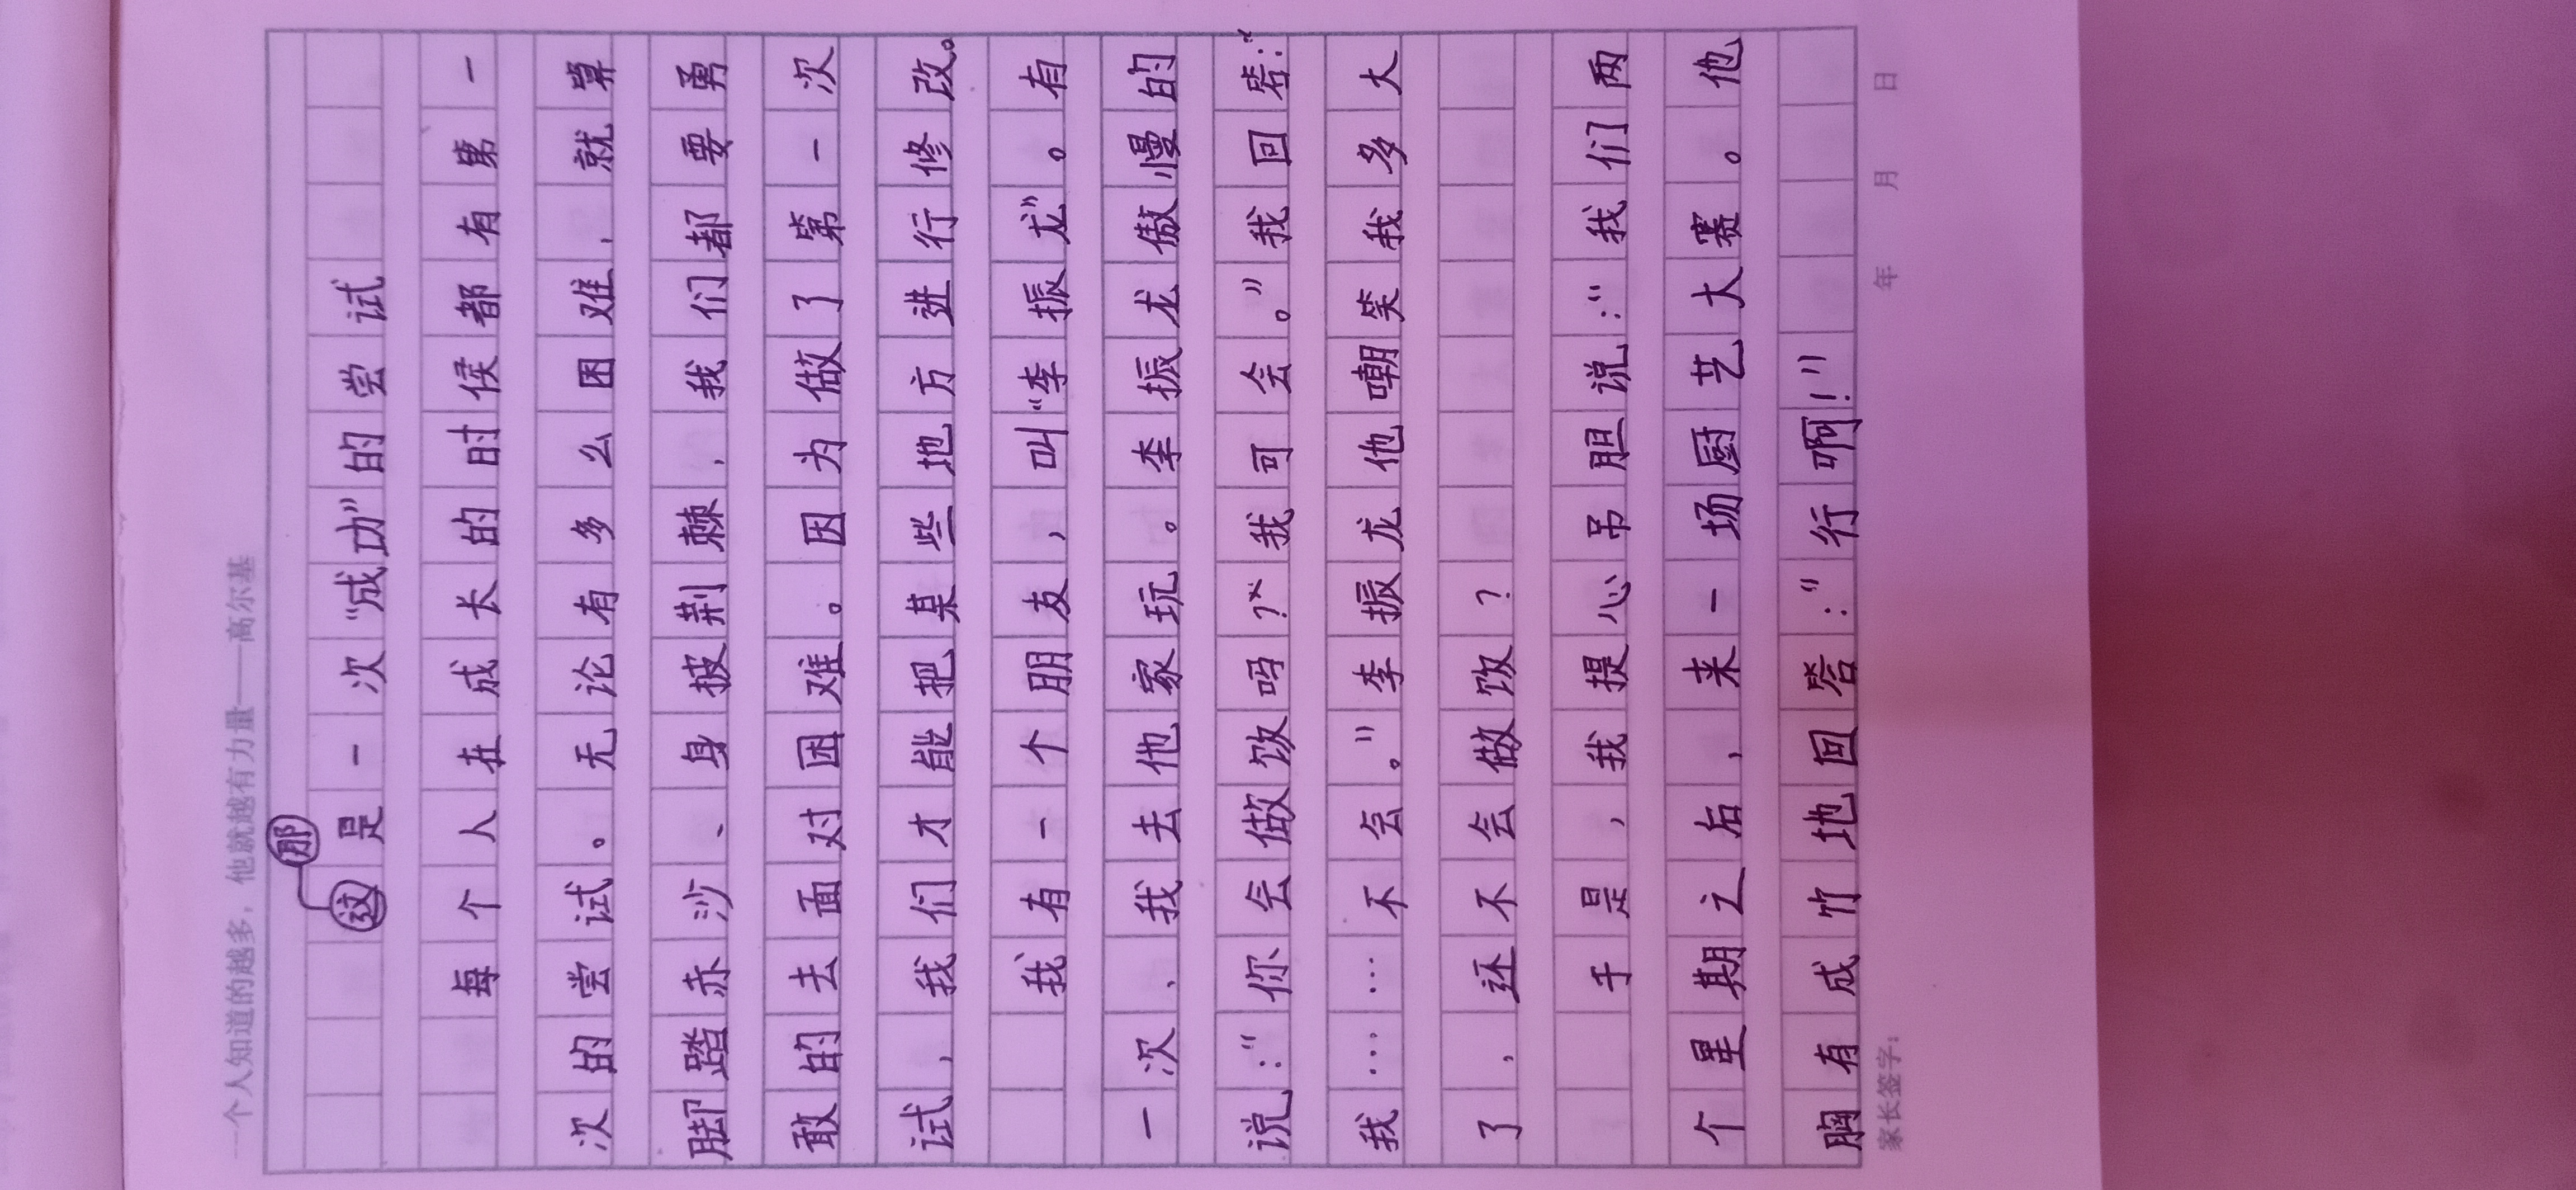 一个人知道的越多，他就越有力量——高尔基
那
这是一次“成功”的尝试
每个人在成长的时侯都有第一
次的尝试。无论有多么困难，就算
脚踏赤沙、身披荆棘，我们都要勇
敢的去面对困难。因为做了第一次
试，我们才能把某些地方进行修改。
我有一个朋友，叫“李振龙”。有
一次，我去他家玩。李振龙傲慢的
说：“你会做饭吗？”我可会。”我回答：“
我……不会。”李振龙他嘲笑我多大
了，还不会做饭？
于是，我提心吊胆说：“我们两
个星期之后，来一场厨艺大赛。他
胸有成竹地回答：“行啊！”
家长签字： 年 月 日